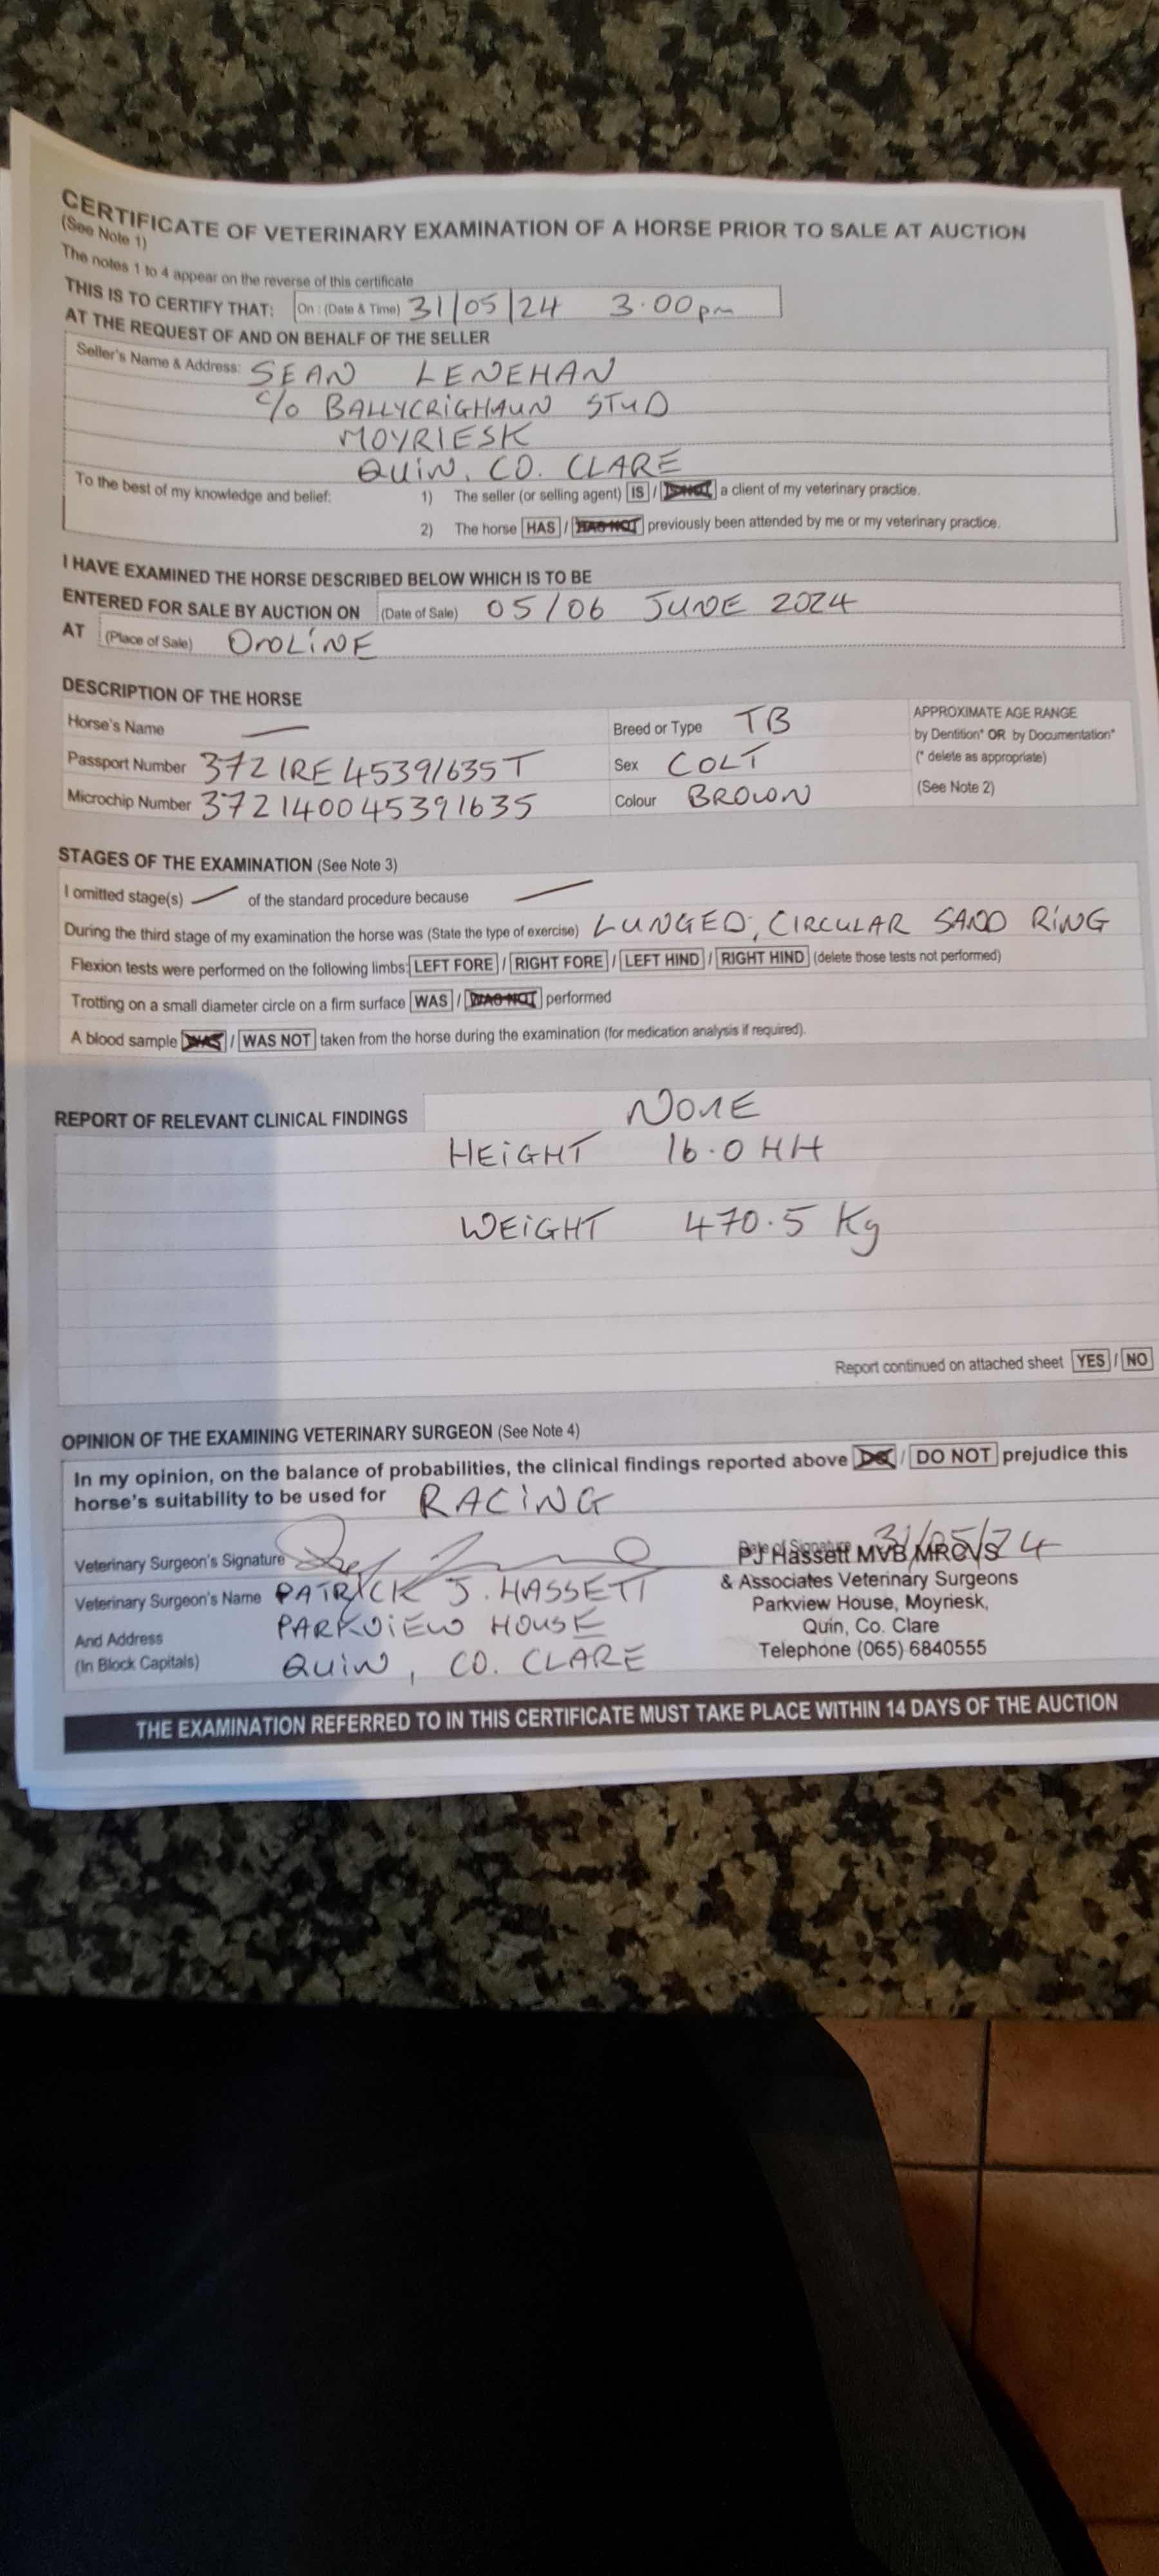 CERTIFICATE OF VETERINARY EXAMINATION OF A HORSE PRIOR TO SALE AT AUCTION
(See Note 1)
The notes 1 to 4 appear on the reverse of this certificate
THIS IS TO CERTIFY THAT: On : (Date & Time) 31/05/24 3.00pm
AT THE REQUEST OF AND ON BEHALF OF THE SELLER
Seller's Name & Address: SEAN LENEHAN
C/O BALLYCRIGHAUN STUD
MOYRIESK
QUIN, CO. CLARE
To the best of my knowledge and belief: 1) The seller (or selling agent) IS / IS NOT a client of my veterinary practice.
2) The horse HAS / HAS NOT previously been attended by me or my veterinary practice.
I HAVE EXAMINED THE HORSE DESCRIBED BELOW WHICH IS TO BE
ENTERED FOR SALE BY AUCTION ON (Date of Sale) 05/06 JUNE 2024
AT (Place of Sale) ONLINE
DESCRIPTION OF THE HORSE
Horse's Name — Breed or Type TB APPROXIMATE AGE RANGE
by Dentition* OR by Documentation*
Passport Number 372IRE45391635T Sex COLT (* delete as appropriate)
Microchip Number 372140045391635 Colour BROWN (See Note 2)
STAGES OF THE EXAMINATION (See Note 3)
I omitted stage(s) — of the standard procedure because —
During the third stage of my examination the horse was (State the type of exercise) LUNGED, CIRCULAR SAND RING
Flexion tests were performed on the following limbs: LEFT FORE / RIGHT FORE / LEFT HIND / RIGHT HIND (delete those tests not performed)
Trotting on a small diameter circle on a firm surface WAS / WAS NOT performed
A blood sample WAS / WAS NOT taken from the horse during the examination (for medication analysis if required).
REPORT OF RELEVANT CLINICAL FINDINGS NONE
HEIGHT 16.0 HH
WEIGHT 470.5 Kg
Report continued on attached sheet YES / NO
OPINION OF THE EXAMINING VETERINARY SURGEON (See Note 4)
In my opinion, on the balance of probabilities, the clinical findings reported above DO / DO NOT prejudice this
horse's suitability to be used for RACING
Veterinary Surgeon's Signature Date of Signature 31/05/24
PJ Hassett MVB MRCVS
Veterinary Surgeon's Name PATRICK J. HASSETT & Associates Veterinary Surgeons
PARKVIEW HOUSE Parkview House, Moyriesk,
And Address Quin, Co. Clare
(In Block Capitals) QUIN, CO. CLARE Telephone (065) 6840555
THE EXAMINATION REFERRED TO IN THIS CERTIFICATE MUST TAKE PLACE WITHIN 14 DAYS OF THE AUCTION